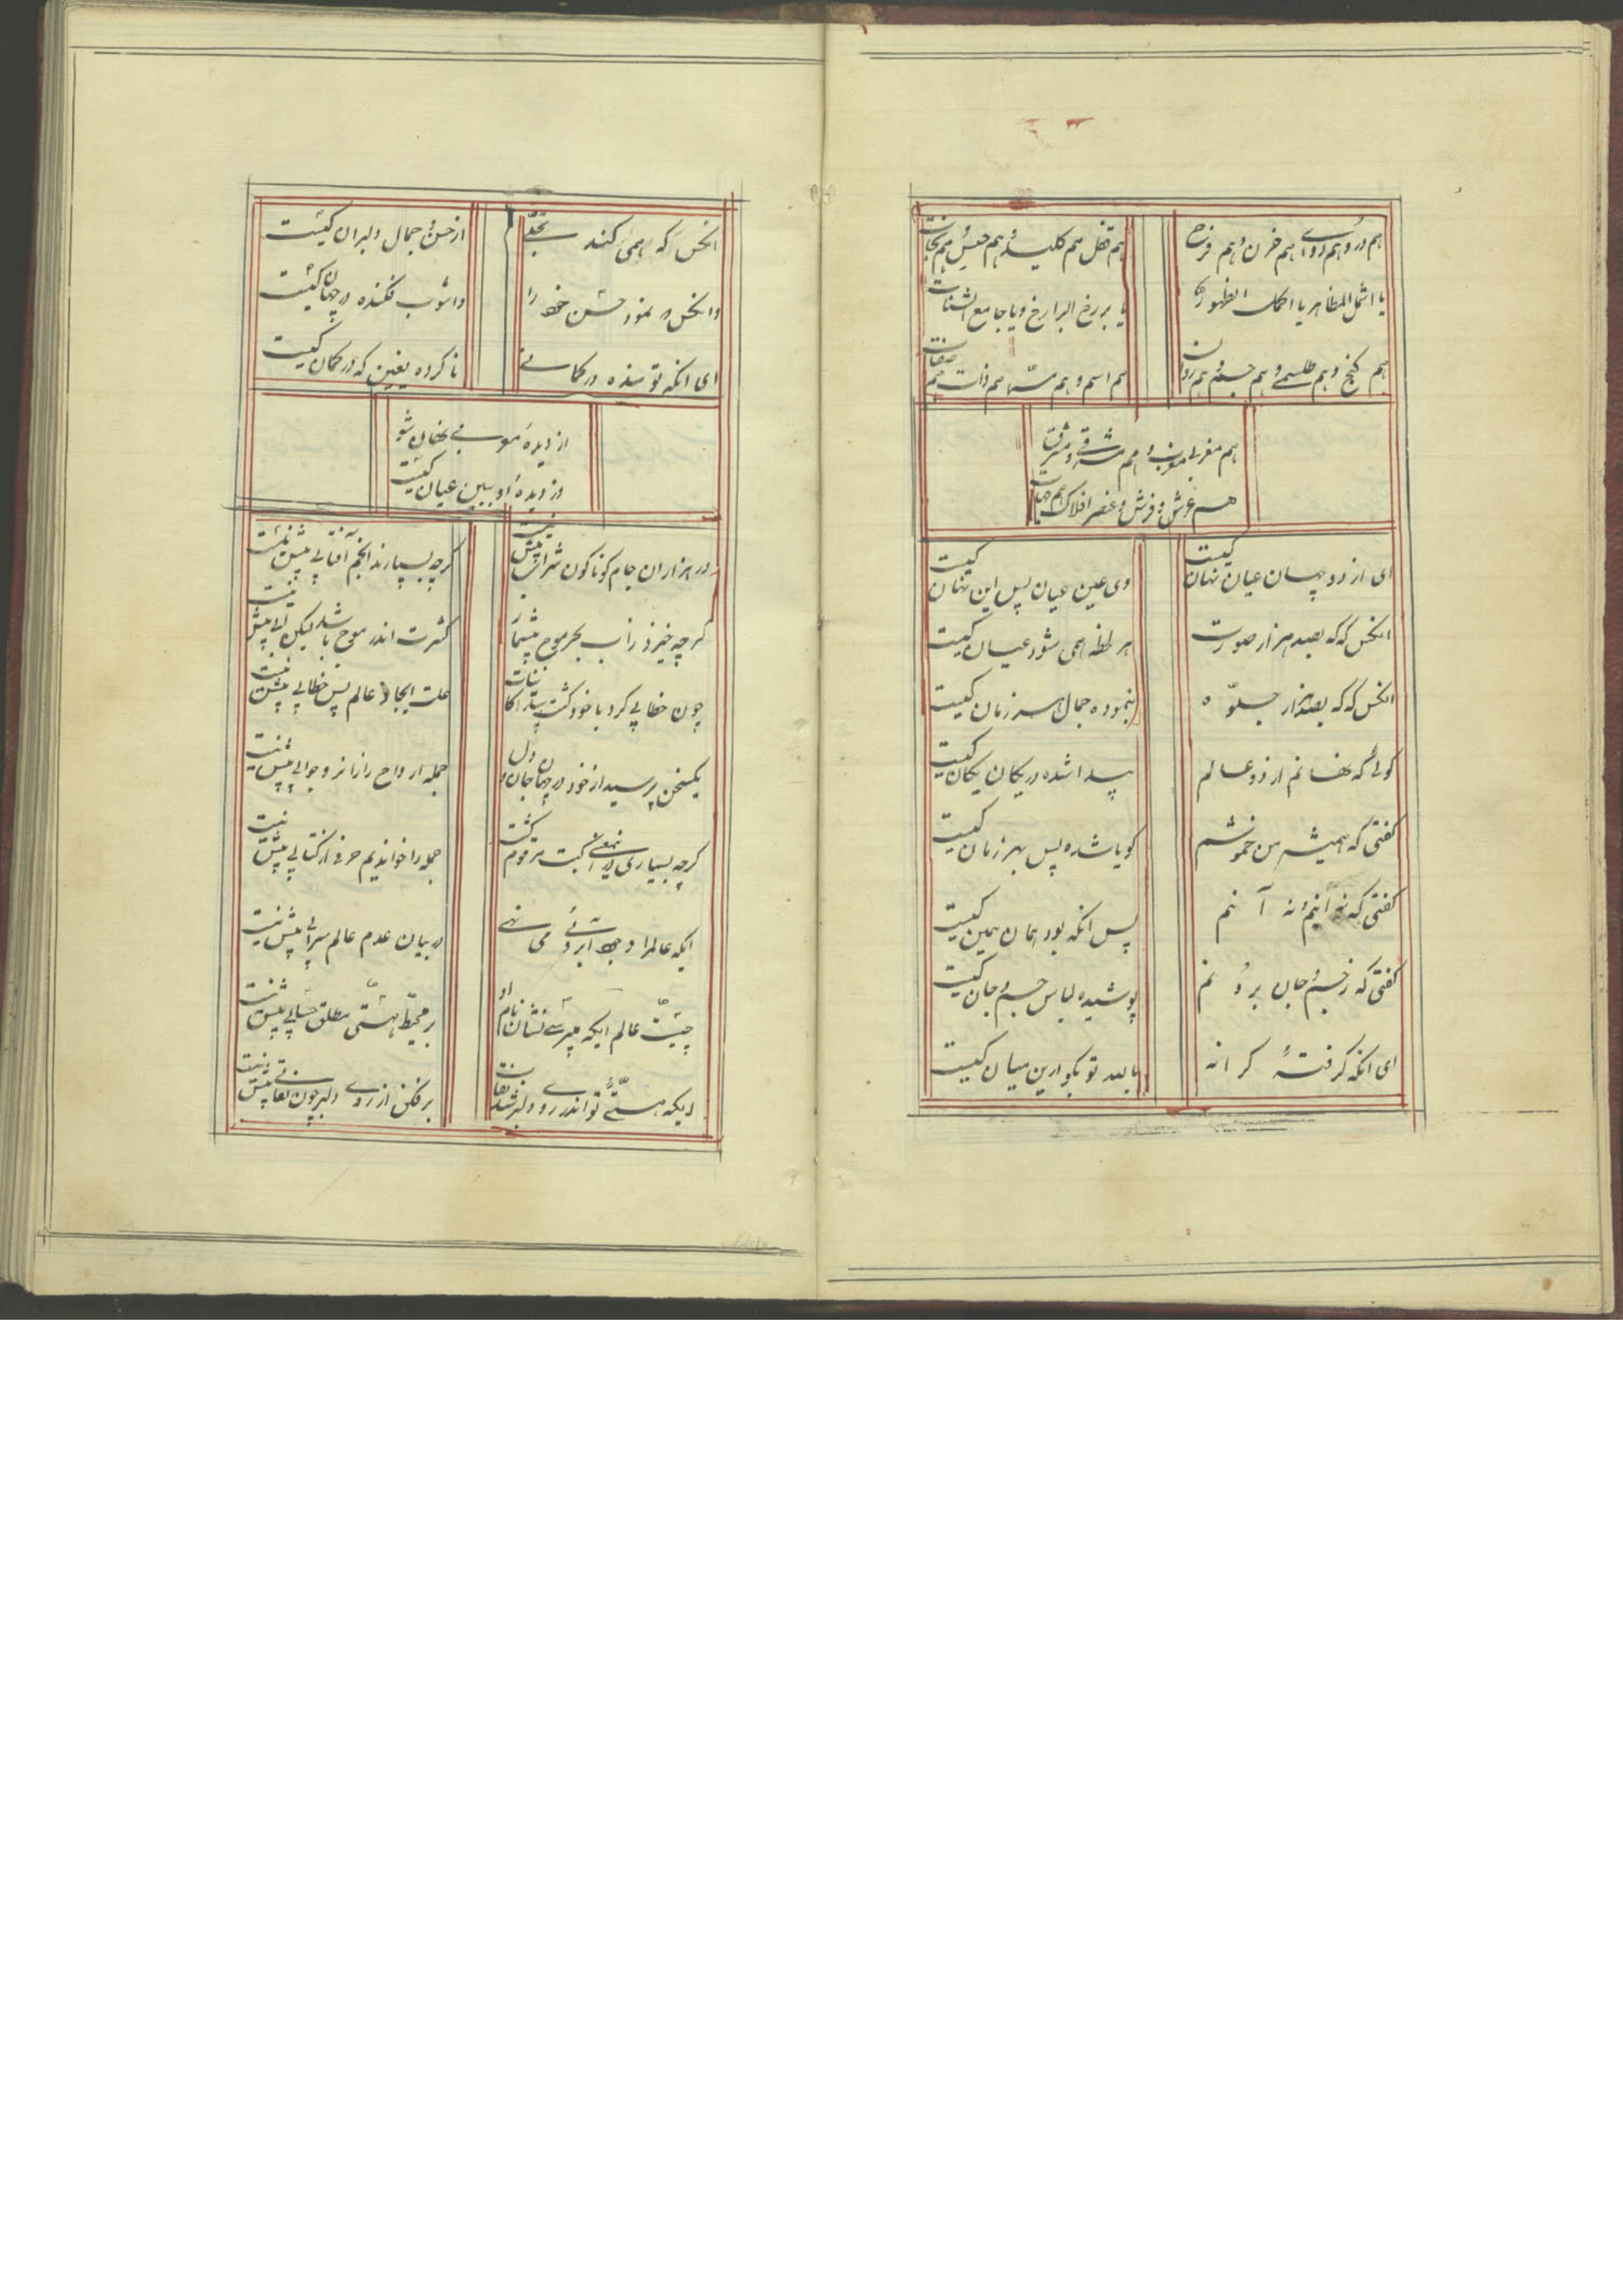 هم درد و هم دوای هم حزن و هم فرح
هم قفل هم کلید و هم حبس و هم نجات
یا اشمل المظاهر یا اکمل الظهور
یا برزخ البرازخ و یا جامع الشتات
هم کنج و هم طلسمی و هم جسم و هم روان
هم اسم و هم مسما هم ذات هم صفات
هم مغربی مغرب و هم مشرقی و مشرق
هم عرش و فرش و عنصر افلاک هم جهات
ای از دو جهان عیان نهان کیست
وی عین عیان پس این نهان کیست
انکس که که بصد هزار صورت
هر لحظه همی شود عیان کیست
انکس که که بصد هزار جلوه
بنموده جمال هر زمان کیست
کوئی که نهانم از دو عالم
پیدا شده در یکان یکان کیست
کفتی که همیشه من خموشم
کویا شده پس بهر زبان کیست
کفتی که نه اینم و نه آنم
پس انکه بود همان همین کیست
کفتی که ز جسم و جان بر و نم
پوشیده لباس جسم و جان کیست
ای انکه کرفتهٔ کرانه
بالله تو بکو درین میان کیست
انکس که همی کند تجلی
از حسن و جمال دلبران کیست
وانکس که نمود حسن خود را
واشوب فکنده در جهان کیست
ای انکه تو مانده در کمانی
نا کرده یقین که در کمان کیست
از دیدهٔ مغربی نهان شو
وز دیدهٔ او ببین عیان کیست
در هزاران جام کوناکون شرابی بیش نیست
کرچه بسیارند انجم آفتابی بیش نیست
کر چه خیزد ز اب بحر موج بیشمار
کثرت اندر موج باشد لیکن آبی بیش نیست
چون خطابی کرد با خود کشت پیدا کاینات
علت ایجاد عالم پس خطابی بیش نیست
یکسخن پرسید از خود در جهان جان و دل
جمله ارواح را زانرو جوابی بیش نیست
کرچه بسیاری در انمعنی کتب مرقوم کشت
جمله را خواندیم حرفی از کتابی بیش نیست
ایکه عالم را وجود ابروئی می نهی
در بیابان عدم عالم سرابی بیش نیست
چیست عالم ایکه میپرسی نشان و نام او
بر محیط هستی مطلق حبابی بیش نیست
ایکه هستی تو اندر روی دلبر شد نقاب
برفکن از روی دلبر چون نقابی بیش نیست